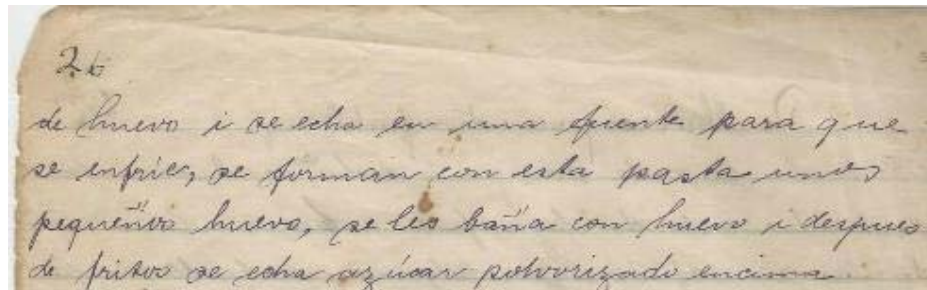 26
de huevo i se echa en una fuente para que
se enfrie, se forman con esta pasta unos
pequeños huevo, se les baña con huevo i despues
de fritos se echa azúcar polvorizado encima.